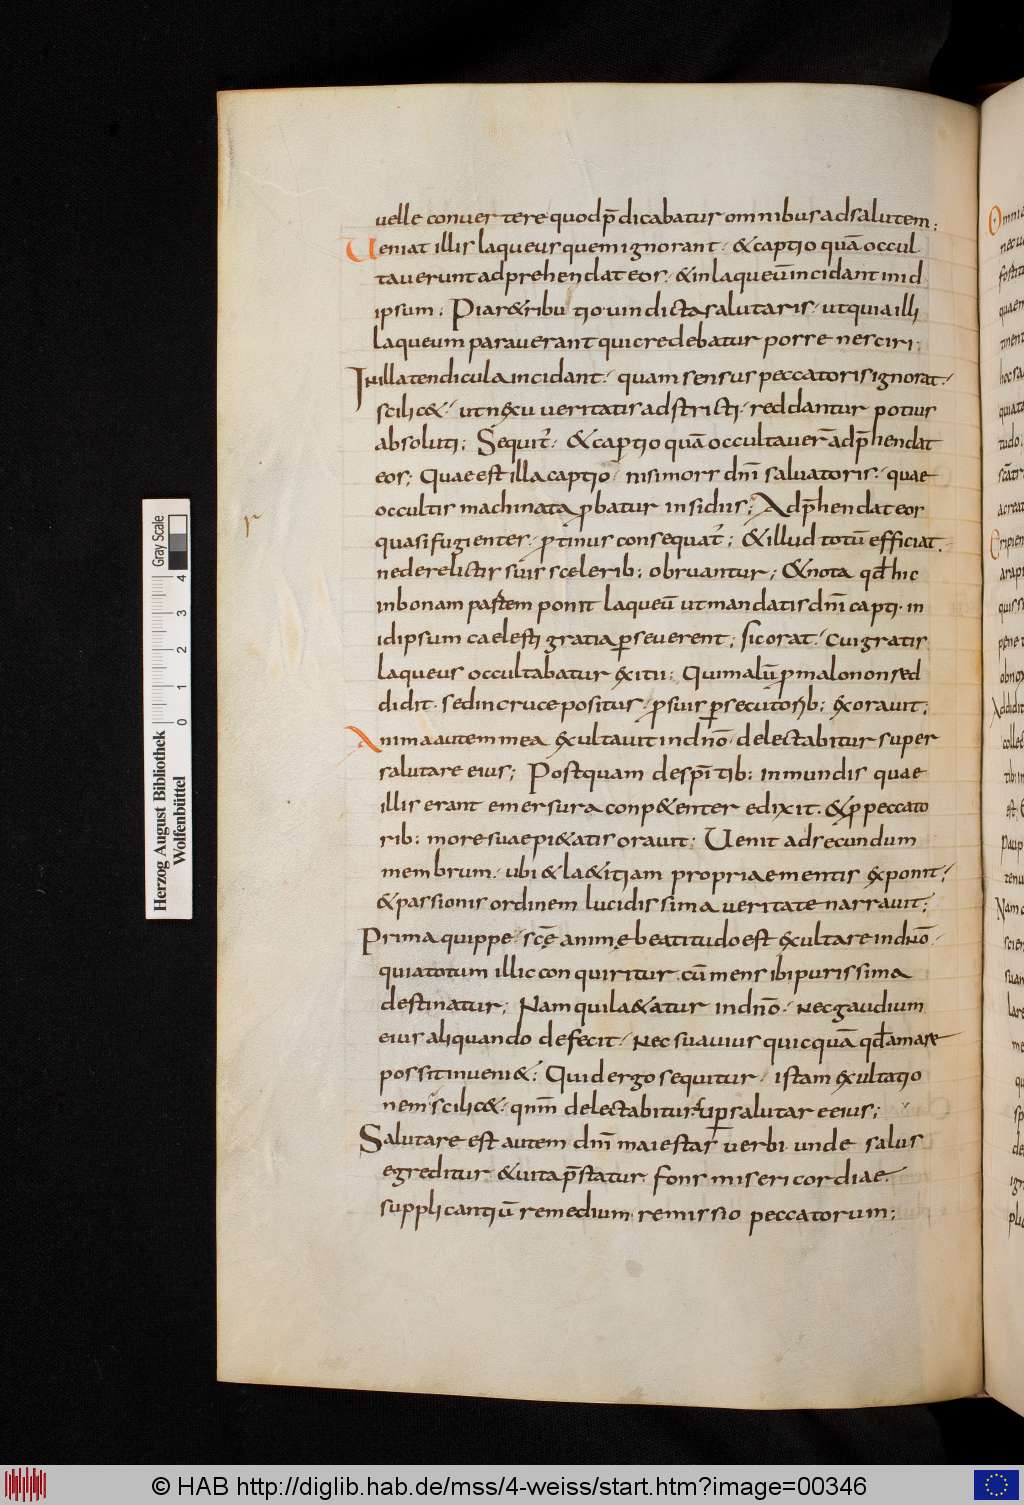 uelle conuertere quod p̄dicabatur omnibus ad salutem;
Ueniat illis laqueus quem ignorant. & captio quā occul
tauerunt adprehendat eos. & in laqueū incidant in id
ipsum; Pia r&ributio uindicta salutaris. ut quia illi
laqueum parauerant qui credebatur posse nesciri;
In illa tendicula incidant. quam sensus peccatoris ignorat.
scilic&. ut nexu ueritatis adstricti. reddantur potius
absoluti; Sequit̄. & captio quā occultauer̄ adp̄hendat
eos; Quae est illa captio. nisi mors dn̄i saluatoris. quae
occultis machinata ꝓbatur insidiis; Adp̄hendat eos
quasi fugientes. ꝓtinus consequat̄; & illud totū efficiat.
ne derelictis suis sceleribꝫ obruantur; & nota qđ hic
in bonam partem ponit laqueū ut mandatis dn̄i capti. in
id ipsum caelesti gratia ꝑseuerent; sic orat. Cui gratis
laqueus occultabatur exitii; Qui malū ꝓ malo non sed
didit. sed in cruce positus. ꝓ suis ꝑsecutoribꝫ exorauit;
Anima autem mea exultauit in dn̄o. delectabitur super
salutare eius; Postquam desp̄ntibꝫ in mundis quae
illis erant emersura conp&enter edixit. & ꝓ peccato
ribꝫ more suae pi&atis orauit; Uenit ad secundum
membrum. ubi & la&itiam propriae mentis exponit;
& passionis ordinem lucidissima ueritate narrauit;
Prima quippe. sc̄e animę beatitudo est exultare in dn̄o.
quia totum illic conquiritur. cū mens ibi purissima
destinatur; Nam qui la&atur in dn̄o. nec gaudium
eius aliquando defecit. nec suauius quicquā qđ amare
possit inueni&; Quid ergo sequitur. istam exultatio
nem scilic&. qm̄ delectabitur suꝑ salutare eius;
Salutare est autem dn̄i maiestas uerbi unde salus
egreditur. & uita p̄statur. fons misericordiae.
supplicantiū remedium. remissio peccatorum;
Herzog August Bibliothek
Wolfenbüttel
0 1 2 3 4
Gray Scale
© HAB http://diglib.hab.de/mss/4-weiss/start.htm?image=00346